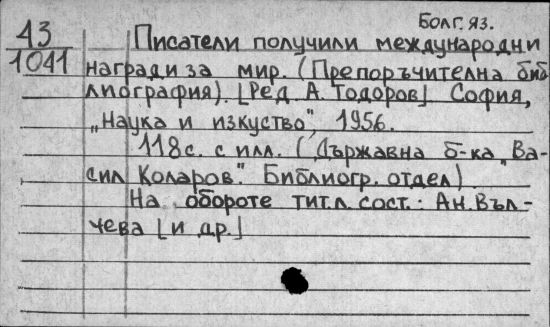 Болг. яз.
43
1041
Писатели получили международни
награди за мир. (Препоръчителна биб-
лиография). [Ред. А. Тодоров] София,
„Наука и изкуство", 1956.
118 с. с илл. (Държавна б-ка „Ва-
сил Коларов". Библиогр. отдел)
На обороте тит.л. сост.: Ан. Въл-
чева [и др.]